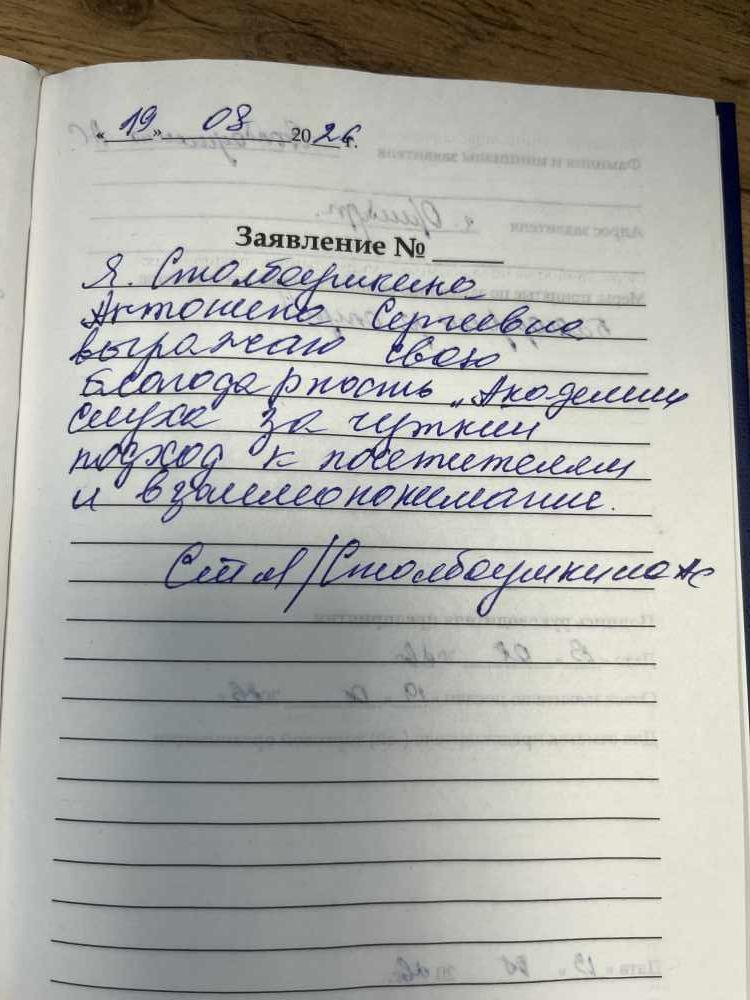 « 19 » 08 2026 г.
Заявление № ____
Я. Столбоушкина
Антонина Сергеевна
выражаю свою
благодарность „Академии
слуха за чуткий
подход к посетителям
и взаимопонимание.
Столбоушкина АС